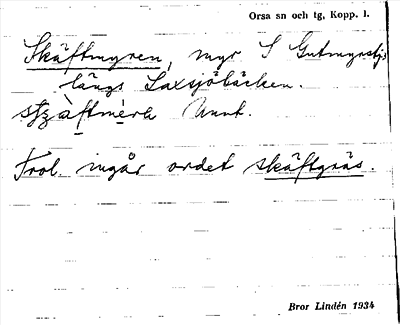 Orsa sn och tg, Kopp. l.
Skäftmyren, myr S Gutmyrstj:
längs Laxsjöbäcken.
Trol. ingår ordet skäftgräs.
Bror Lindén 1934